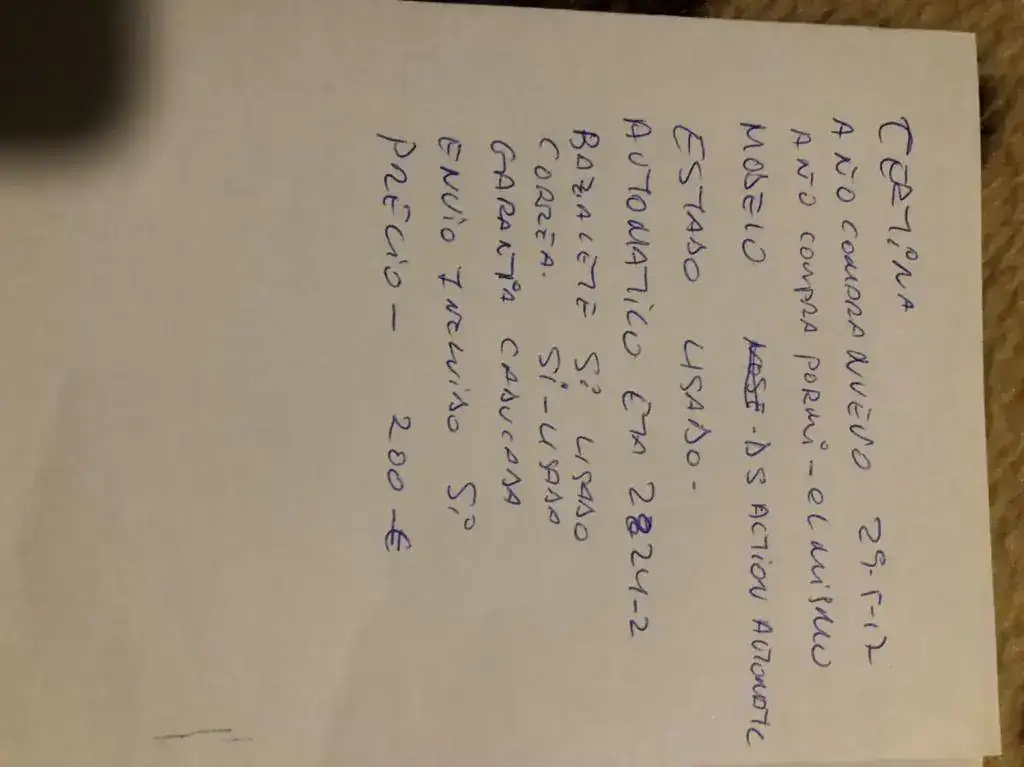 CERTINA
AÑO COMPRA NUEVO 29-5-17
AÑO COMPRA POR MI - EL MISMO
MODELO - DS ACTION AUTOMATIC
ESTADO USADO -
AUTOMATICO ETA 2824-2
BAZALETE SI USADO
CORREA. SI - USADA
GARANTIA CADUCADA
ENVIO INCLUIDO SI
PRECIO - 200 - €